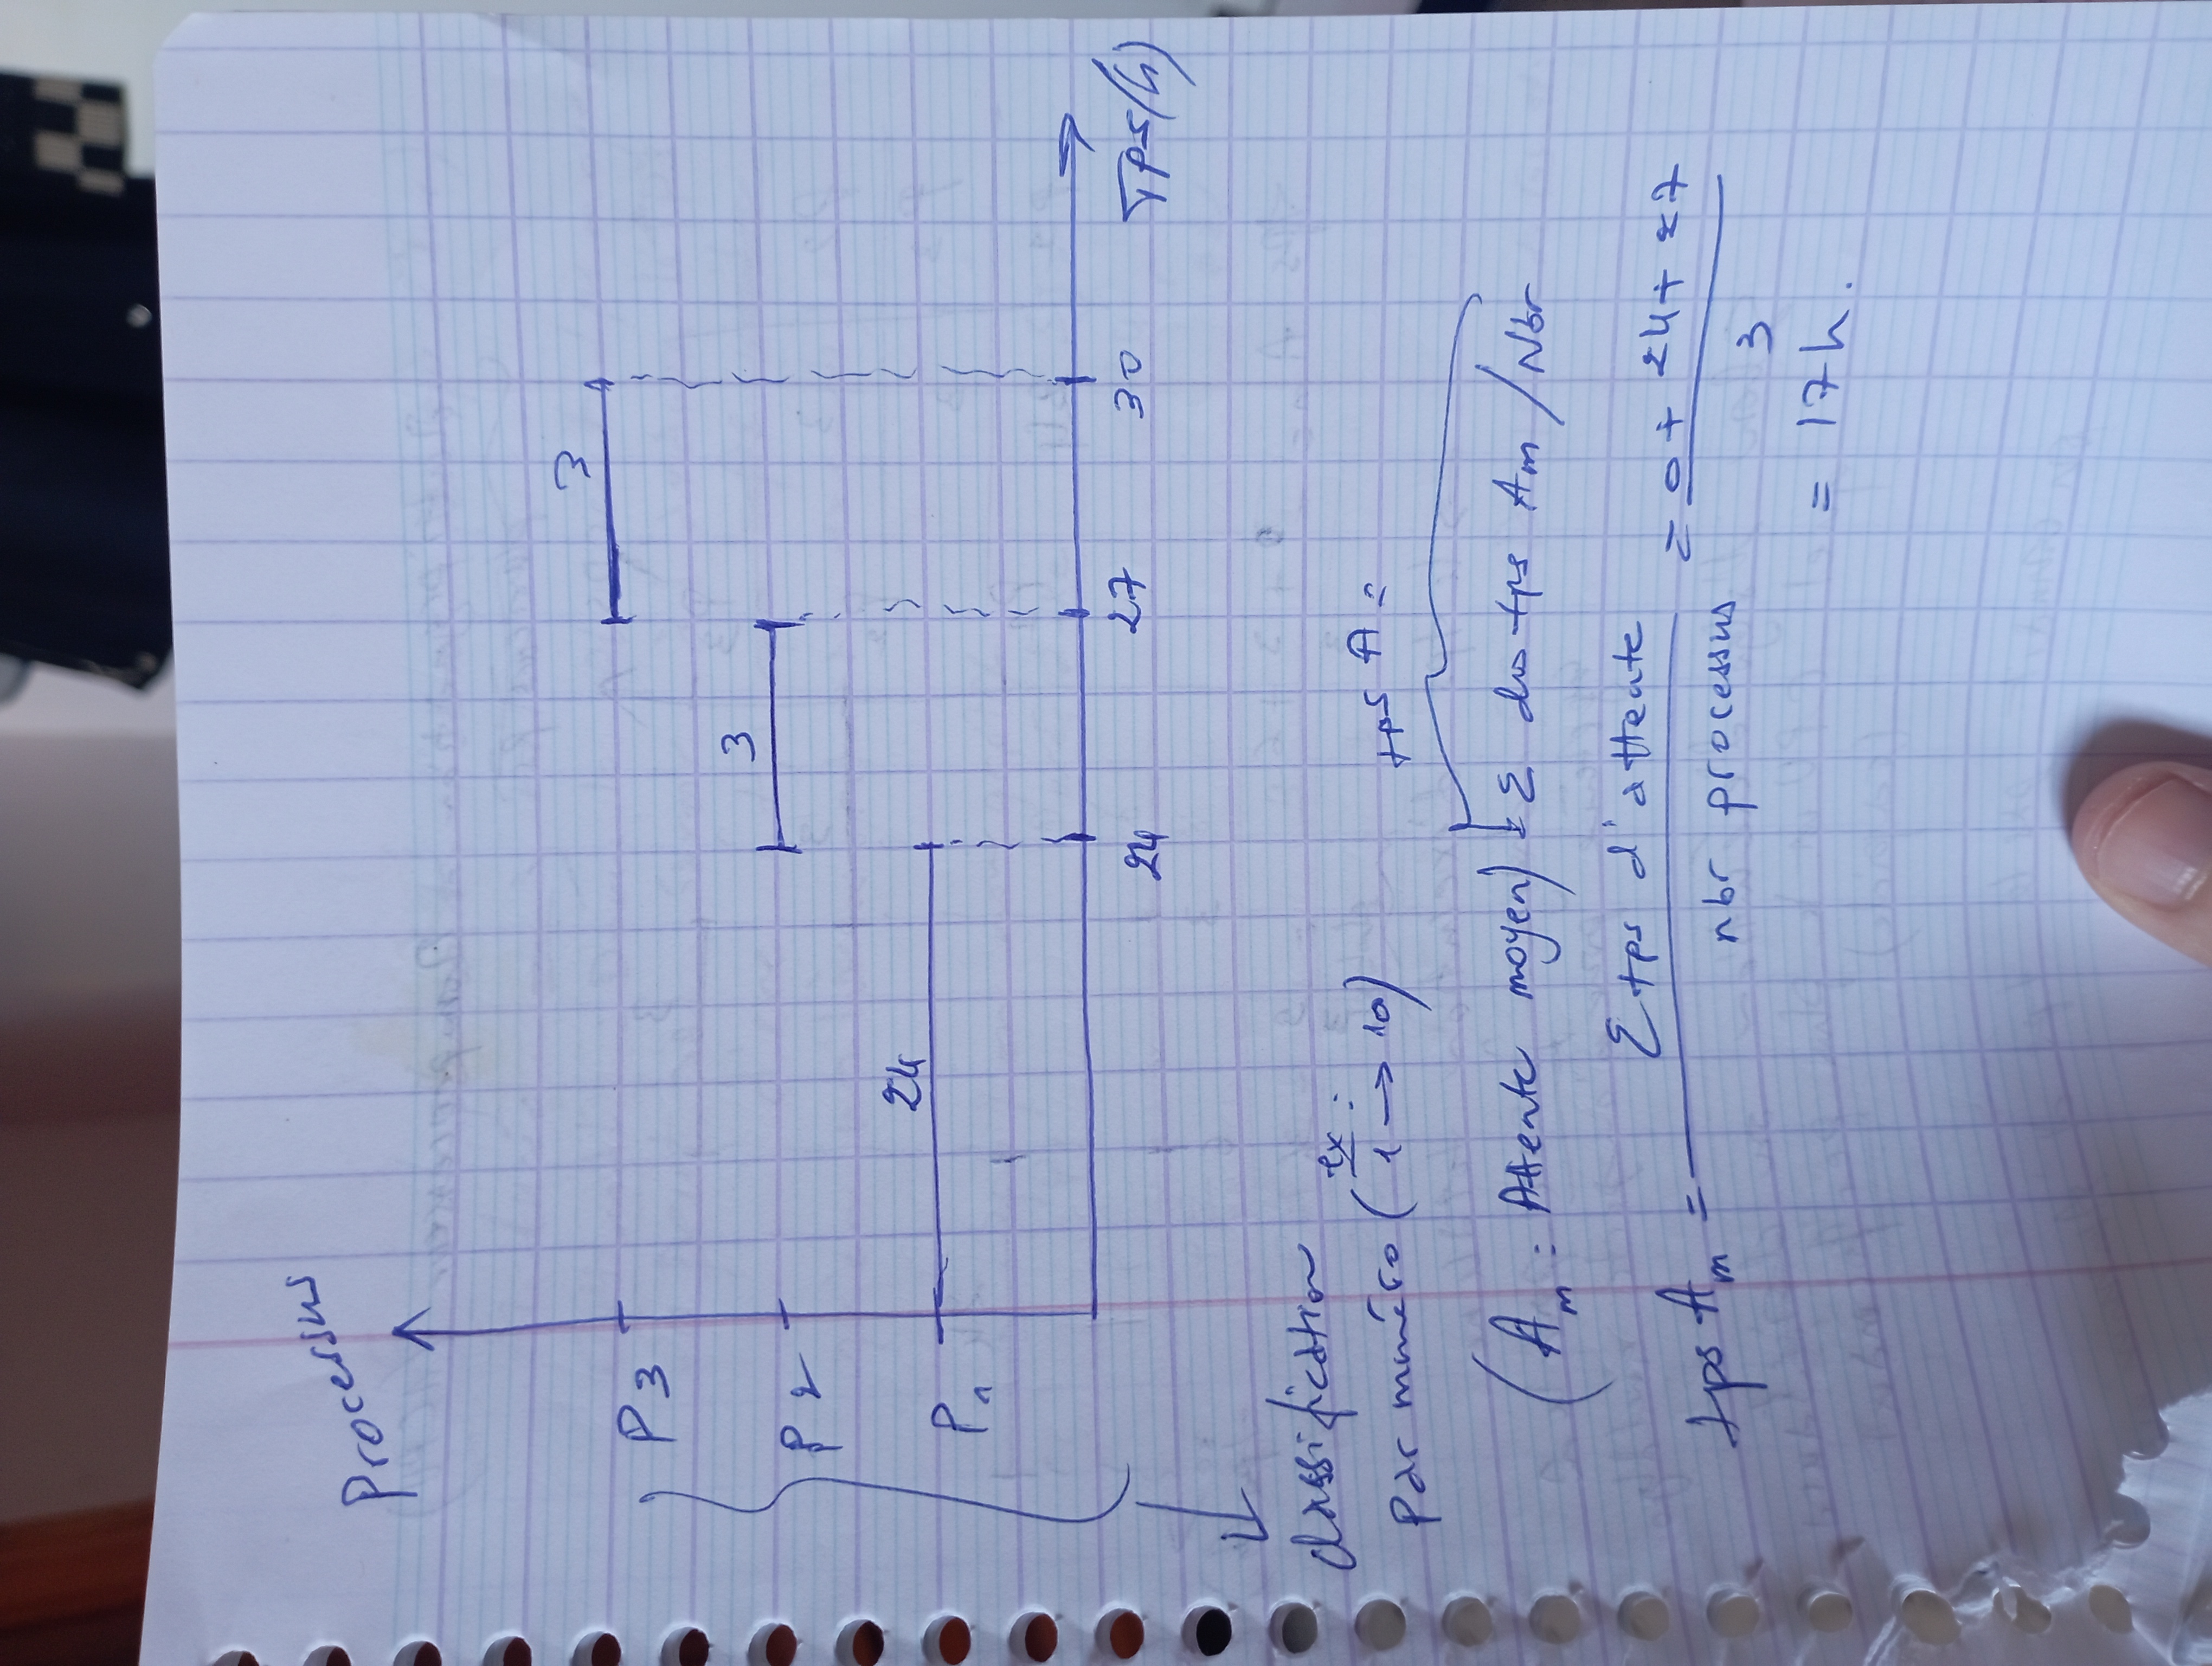 Processus
3
P3
3
P2
24
P1
24 27 30 Tps(h)
classification
ex :
par numéro ( 1 → 10)
tps A =
(Am : Attente moyen) Σ des tps Am / Nbr
tps Am = Σ tps d'attente / nbr processus = 0 + 24 + 27 / 3
= 17h.